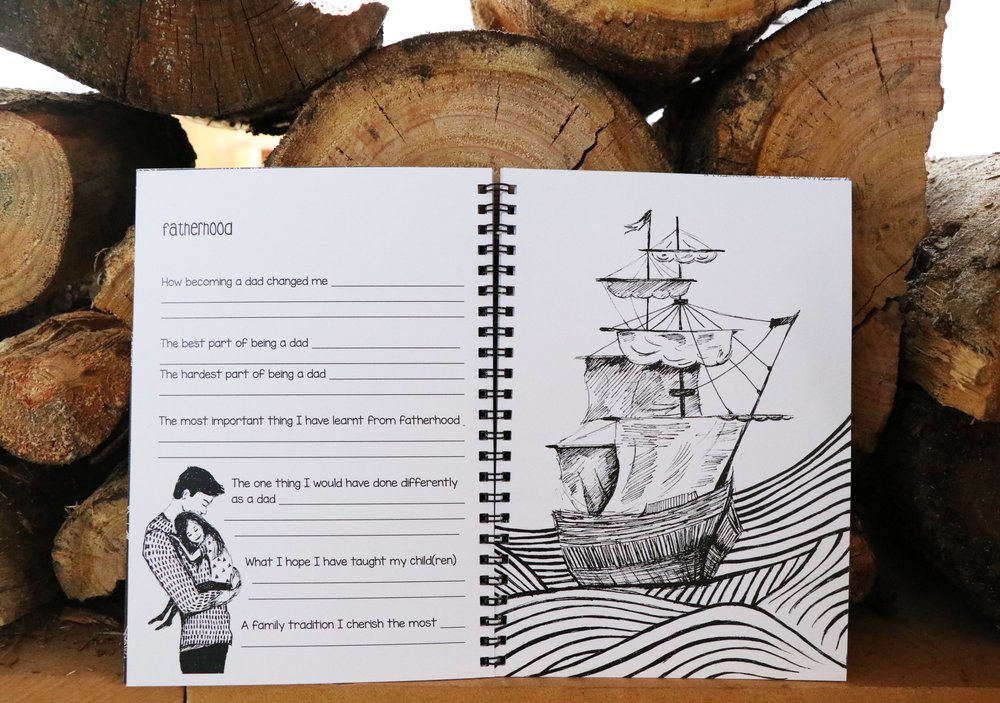 fatherhood
How becoming a dad changed me
The best part of being a dad
The hardest part of being a dad
The most important thing I have learnt from fatherhood
The one thing I would have done differently
as a dad
What I hope I have taught my child(ren)
A family tradition I cherish the most